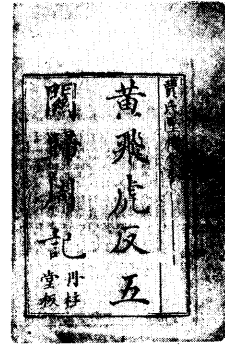 黃飛虎反五
關歸周記
丹桂
堂板